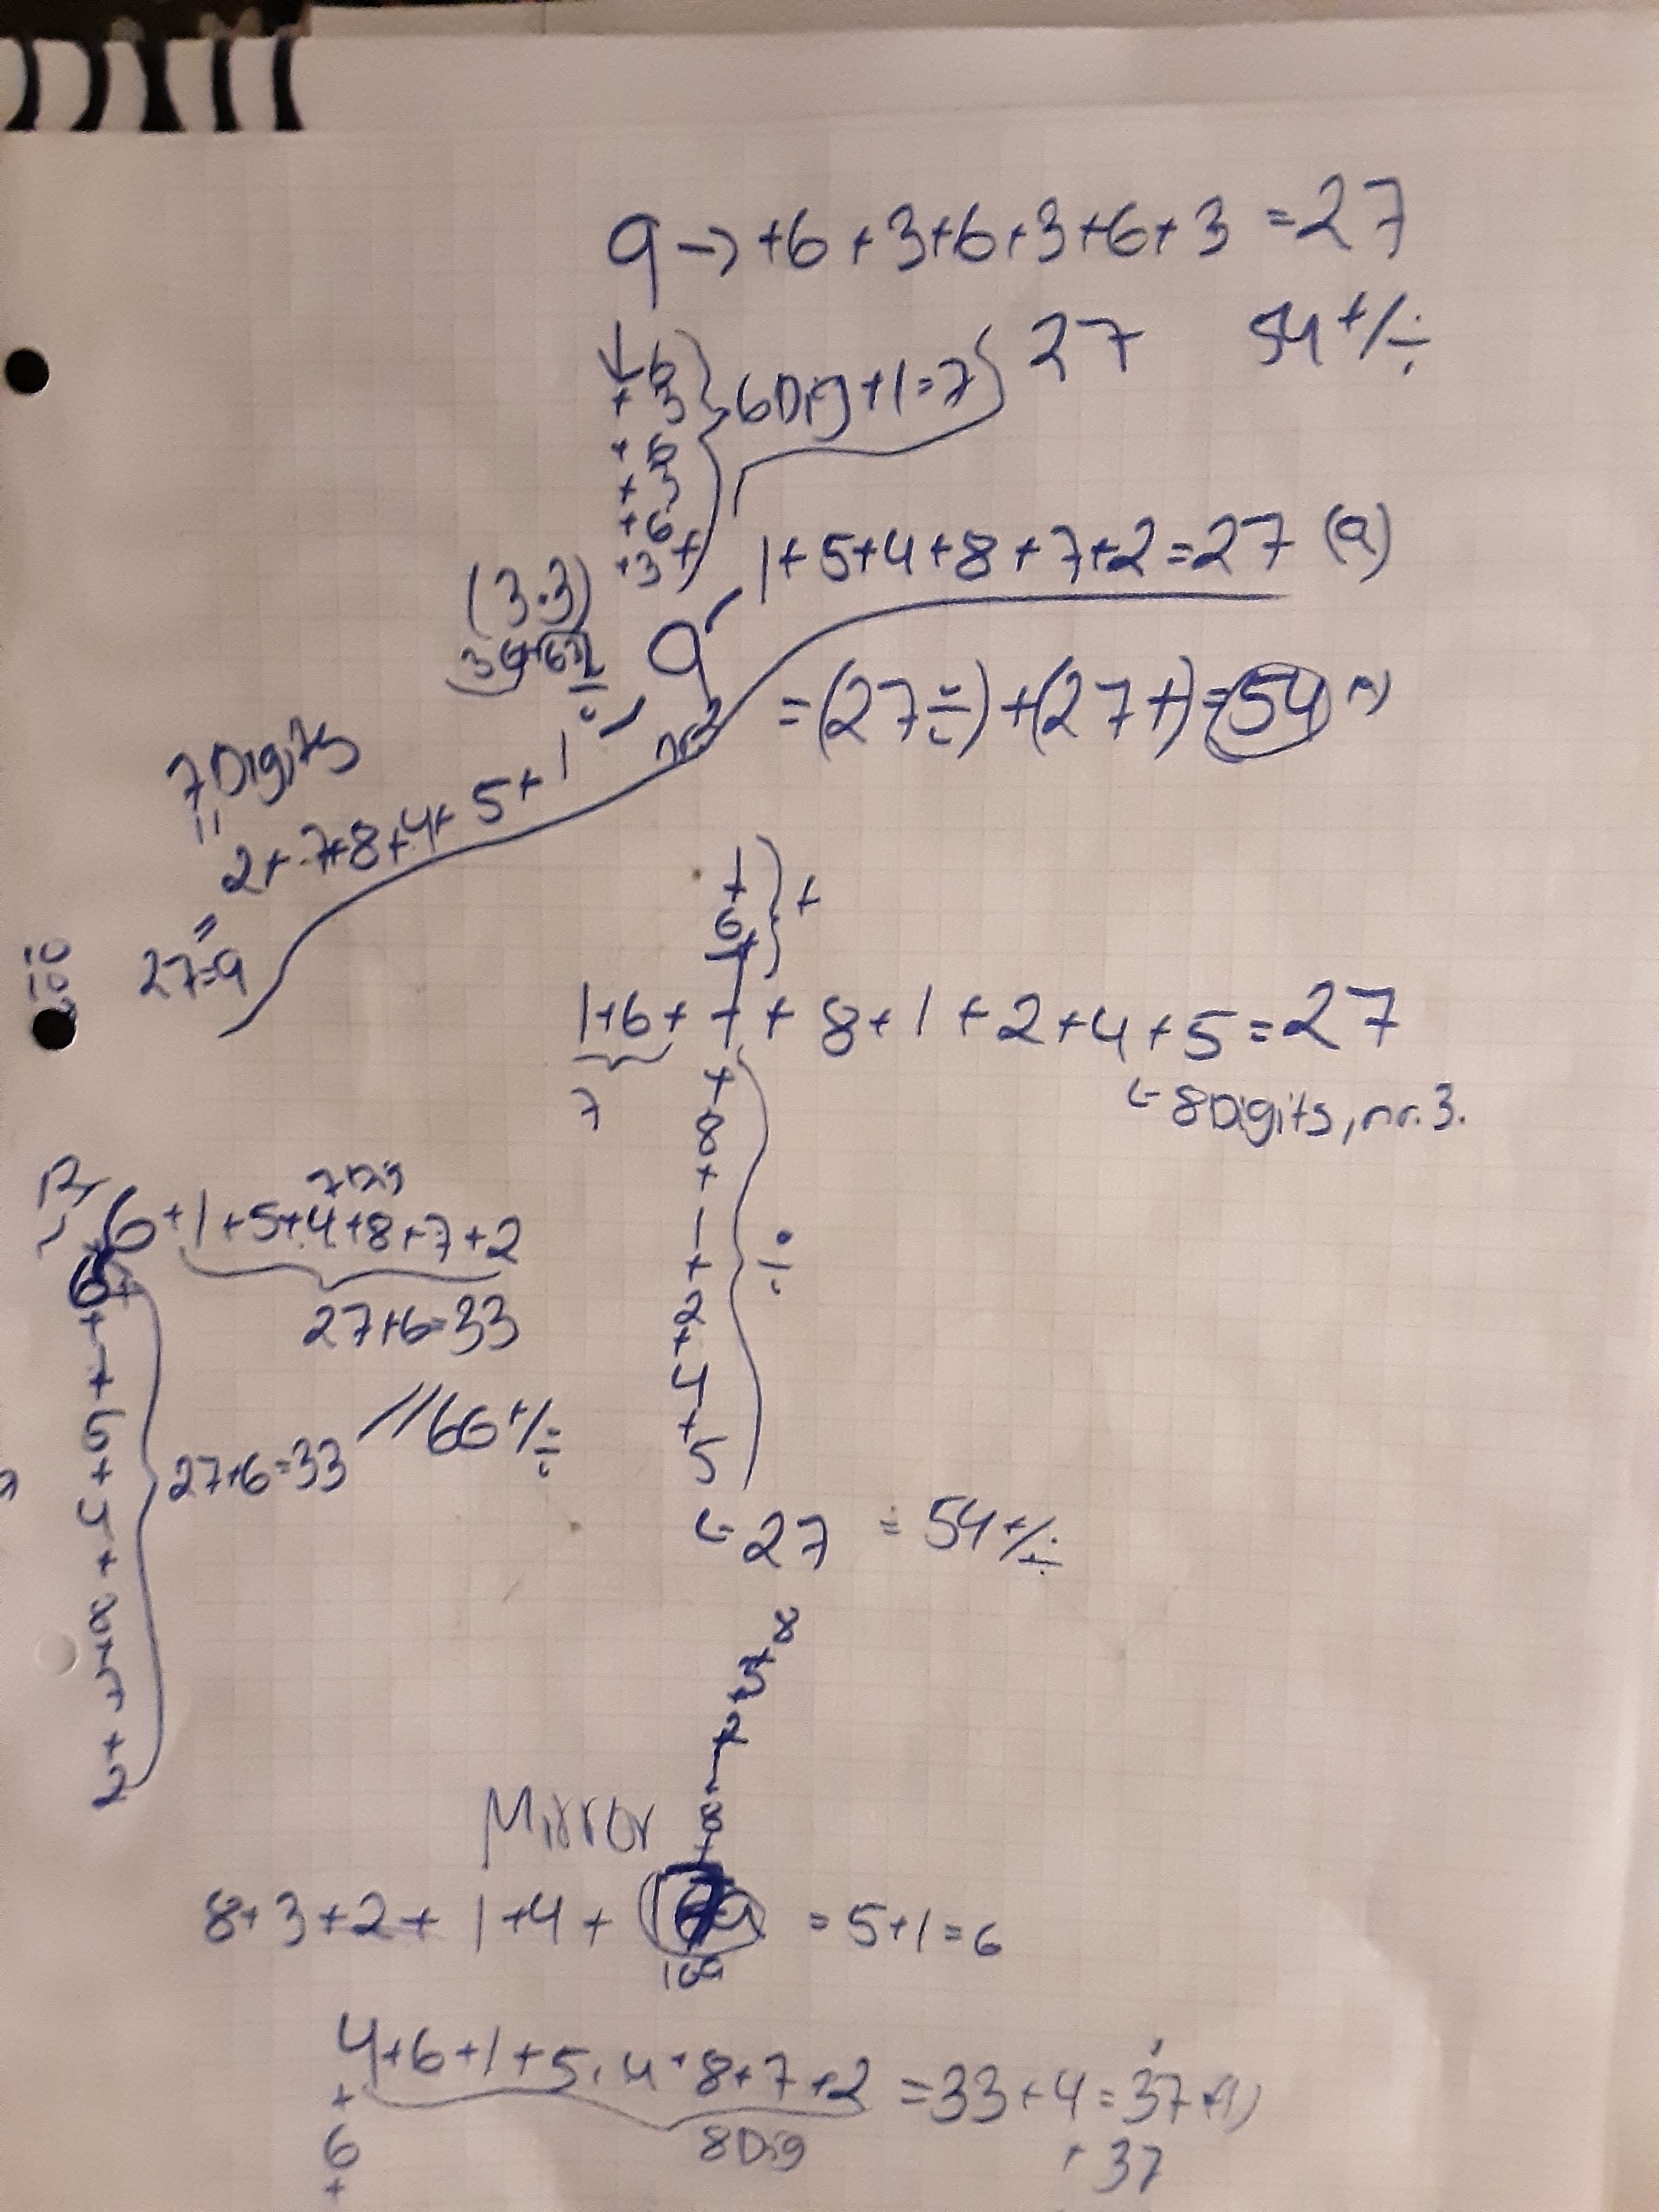 9 → +6+3+6+3+6+3 = 27
↓6
+3
+6
+3
+6
+3+
6Dig+1=7
27
54 +/÷
(3.3)
1+5+4+8+7+2=27 (9)
9
= (27÷)+(27+)=54
7 Digits
2+7+8+4+5+1
27=9
1
6
+
1+6+7+8+1+2+4+5=27
7
← 8 Digits, nr. 3.
+
8
+
1
+
2
+
4
+
5
÷
← 27 = 54 +/÷
7 Dig
6+1+5+4+8+7+2
27+6=33
6+
+
1
+
5
+
4
+
8
+
7
+
2
27+6=33
//66 +/÷
8
+
3
+
2
+
1
8
Mirror
8+3+2+1+4+
169
= 5+1=6
4+6+1+5+4+8+7+2 = 33+4=37
8 Dig
+
6
+
37